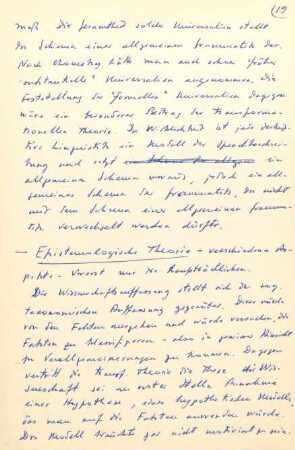 (19)
muß. Die Gesamtheit solcher Universalien stellt
das Schema einer allgemeinen Grammatik dar.
Nach Chomsky hätte man auch schon früher
"substantielle" Universalien angenommen, die
Feststellung der "formellen" Universalien dagegen
wäre ein besonderer Beitrag der transforma-
tionellen Theorie. In Wirklichkeit ist jede deskrip-
tive Linguistik ein Modell der Sprachbeschrei-
bung und setzt ein
allgemeines Schema voraus, jedoch ein all-
gemeines Schema der Grammatik, das nicht
mit dem Schema einer allgemeinen Gramma-
tik verwechselt werden dürfte.
– Epistemologische Theorie – verschiedene As-
pekte – Vorerst nur die hauptsächlichen.
Die Wissenschaftsauffassung stellt sich der sog.
taxonomischen Auffassung gegenüber. Diese würde
von den Fakten ausgehen und würde versuchen, die
Fakten zu klassifizieren – also in gewisser Hinsicht
zu Verallgemeinerungen zu kommen. Dagegen
vertritt die transf. Theorie die These die Wis-
senschaft sei an erster Stelle Annahme
einer Hypothese, eines hypothetischen Modells,
das man auf die Fakten anwenden würde.
Das Modell bräuchte gar nicht motiviert zu sein.